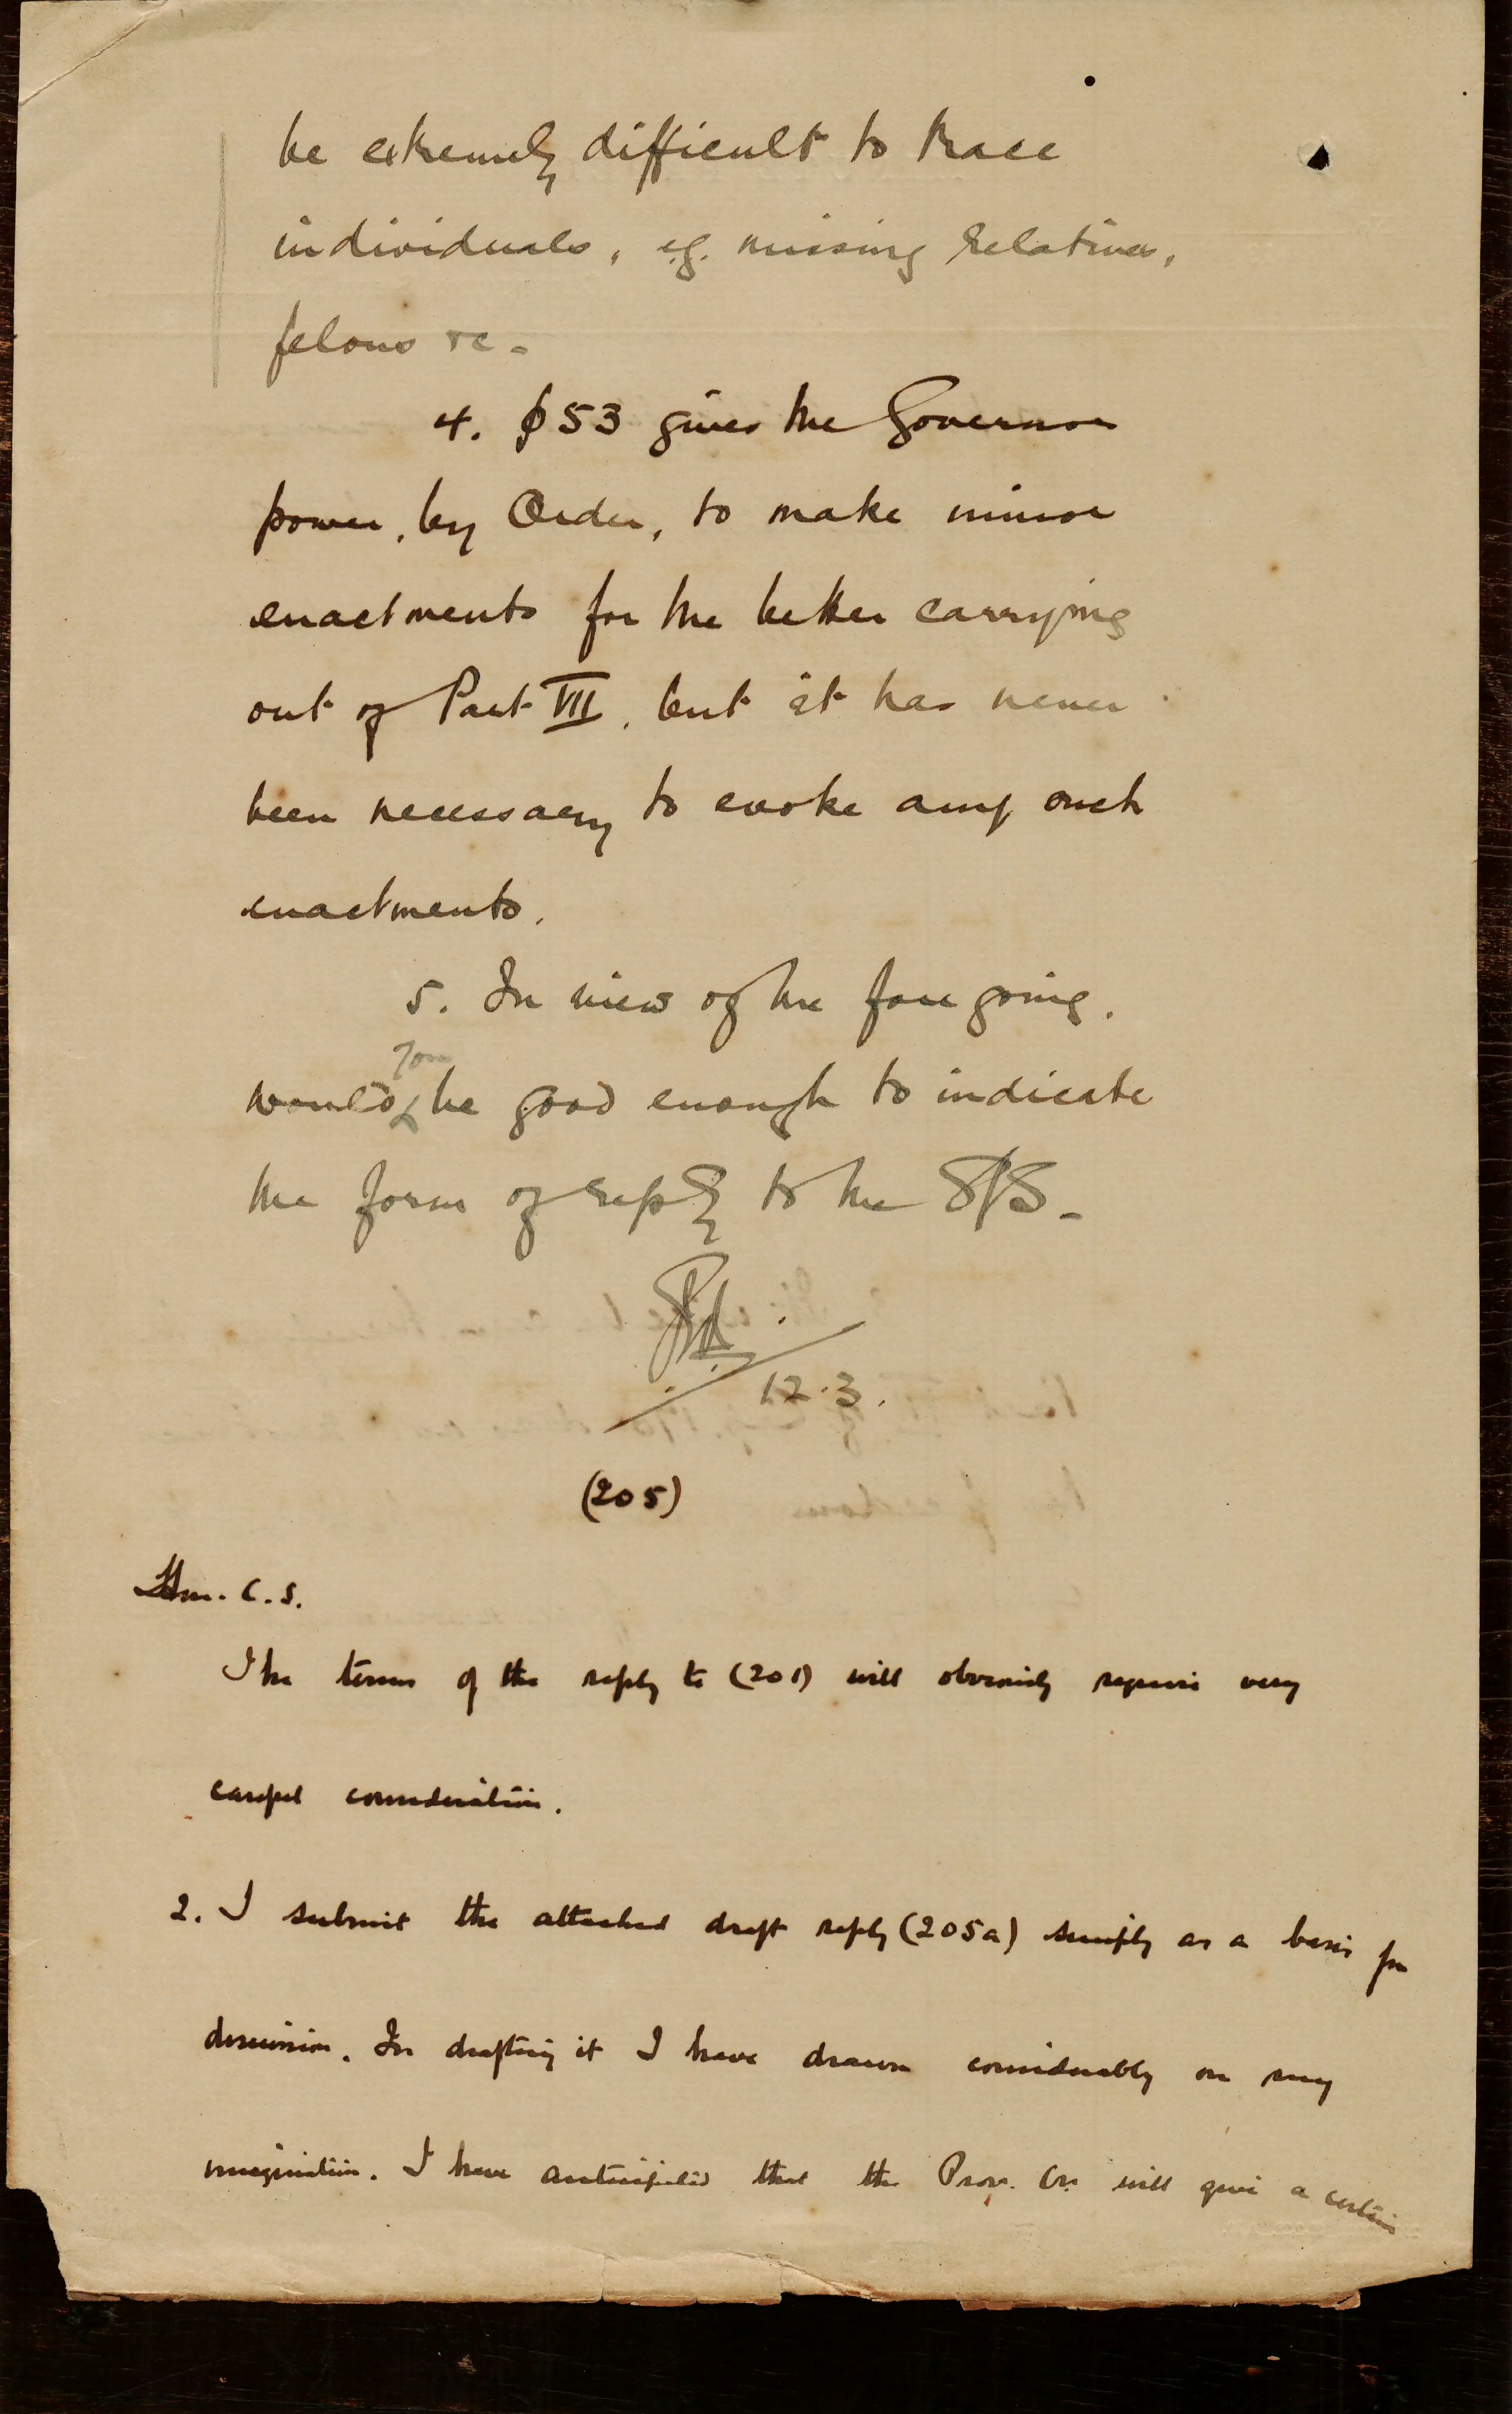 be extremely difficult to trace
individuals, e.g. missing relatives,
felons &c -
4. § 53 gives the Governor
power, by Order, to make minor
enactments for the better carrying
out of Part VII, but it has never
been necessary to evoke any such
enactments.
5. In view of the foregoing,
you
would be good enough to indicate
the form of reply to the S/S -
12.3.
(205)
Hon. C.S.
The terms of the reply to (201) will obviously require very
careful consideration.
2. I submit the attached draft reply (205a) simply as a basis for
discussion. In drafting it I have drawn considerably on my
imagination. I have anticipated that the Prov. Cr. will give a certain